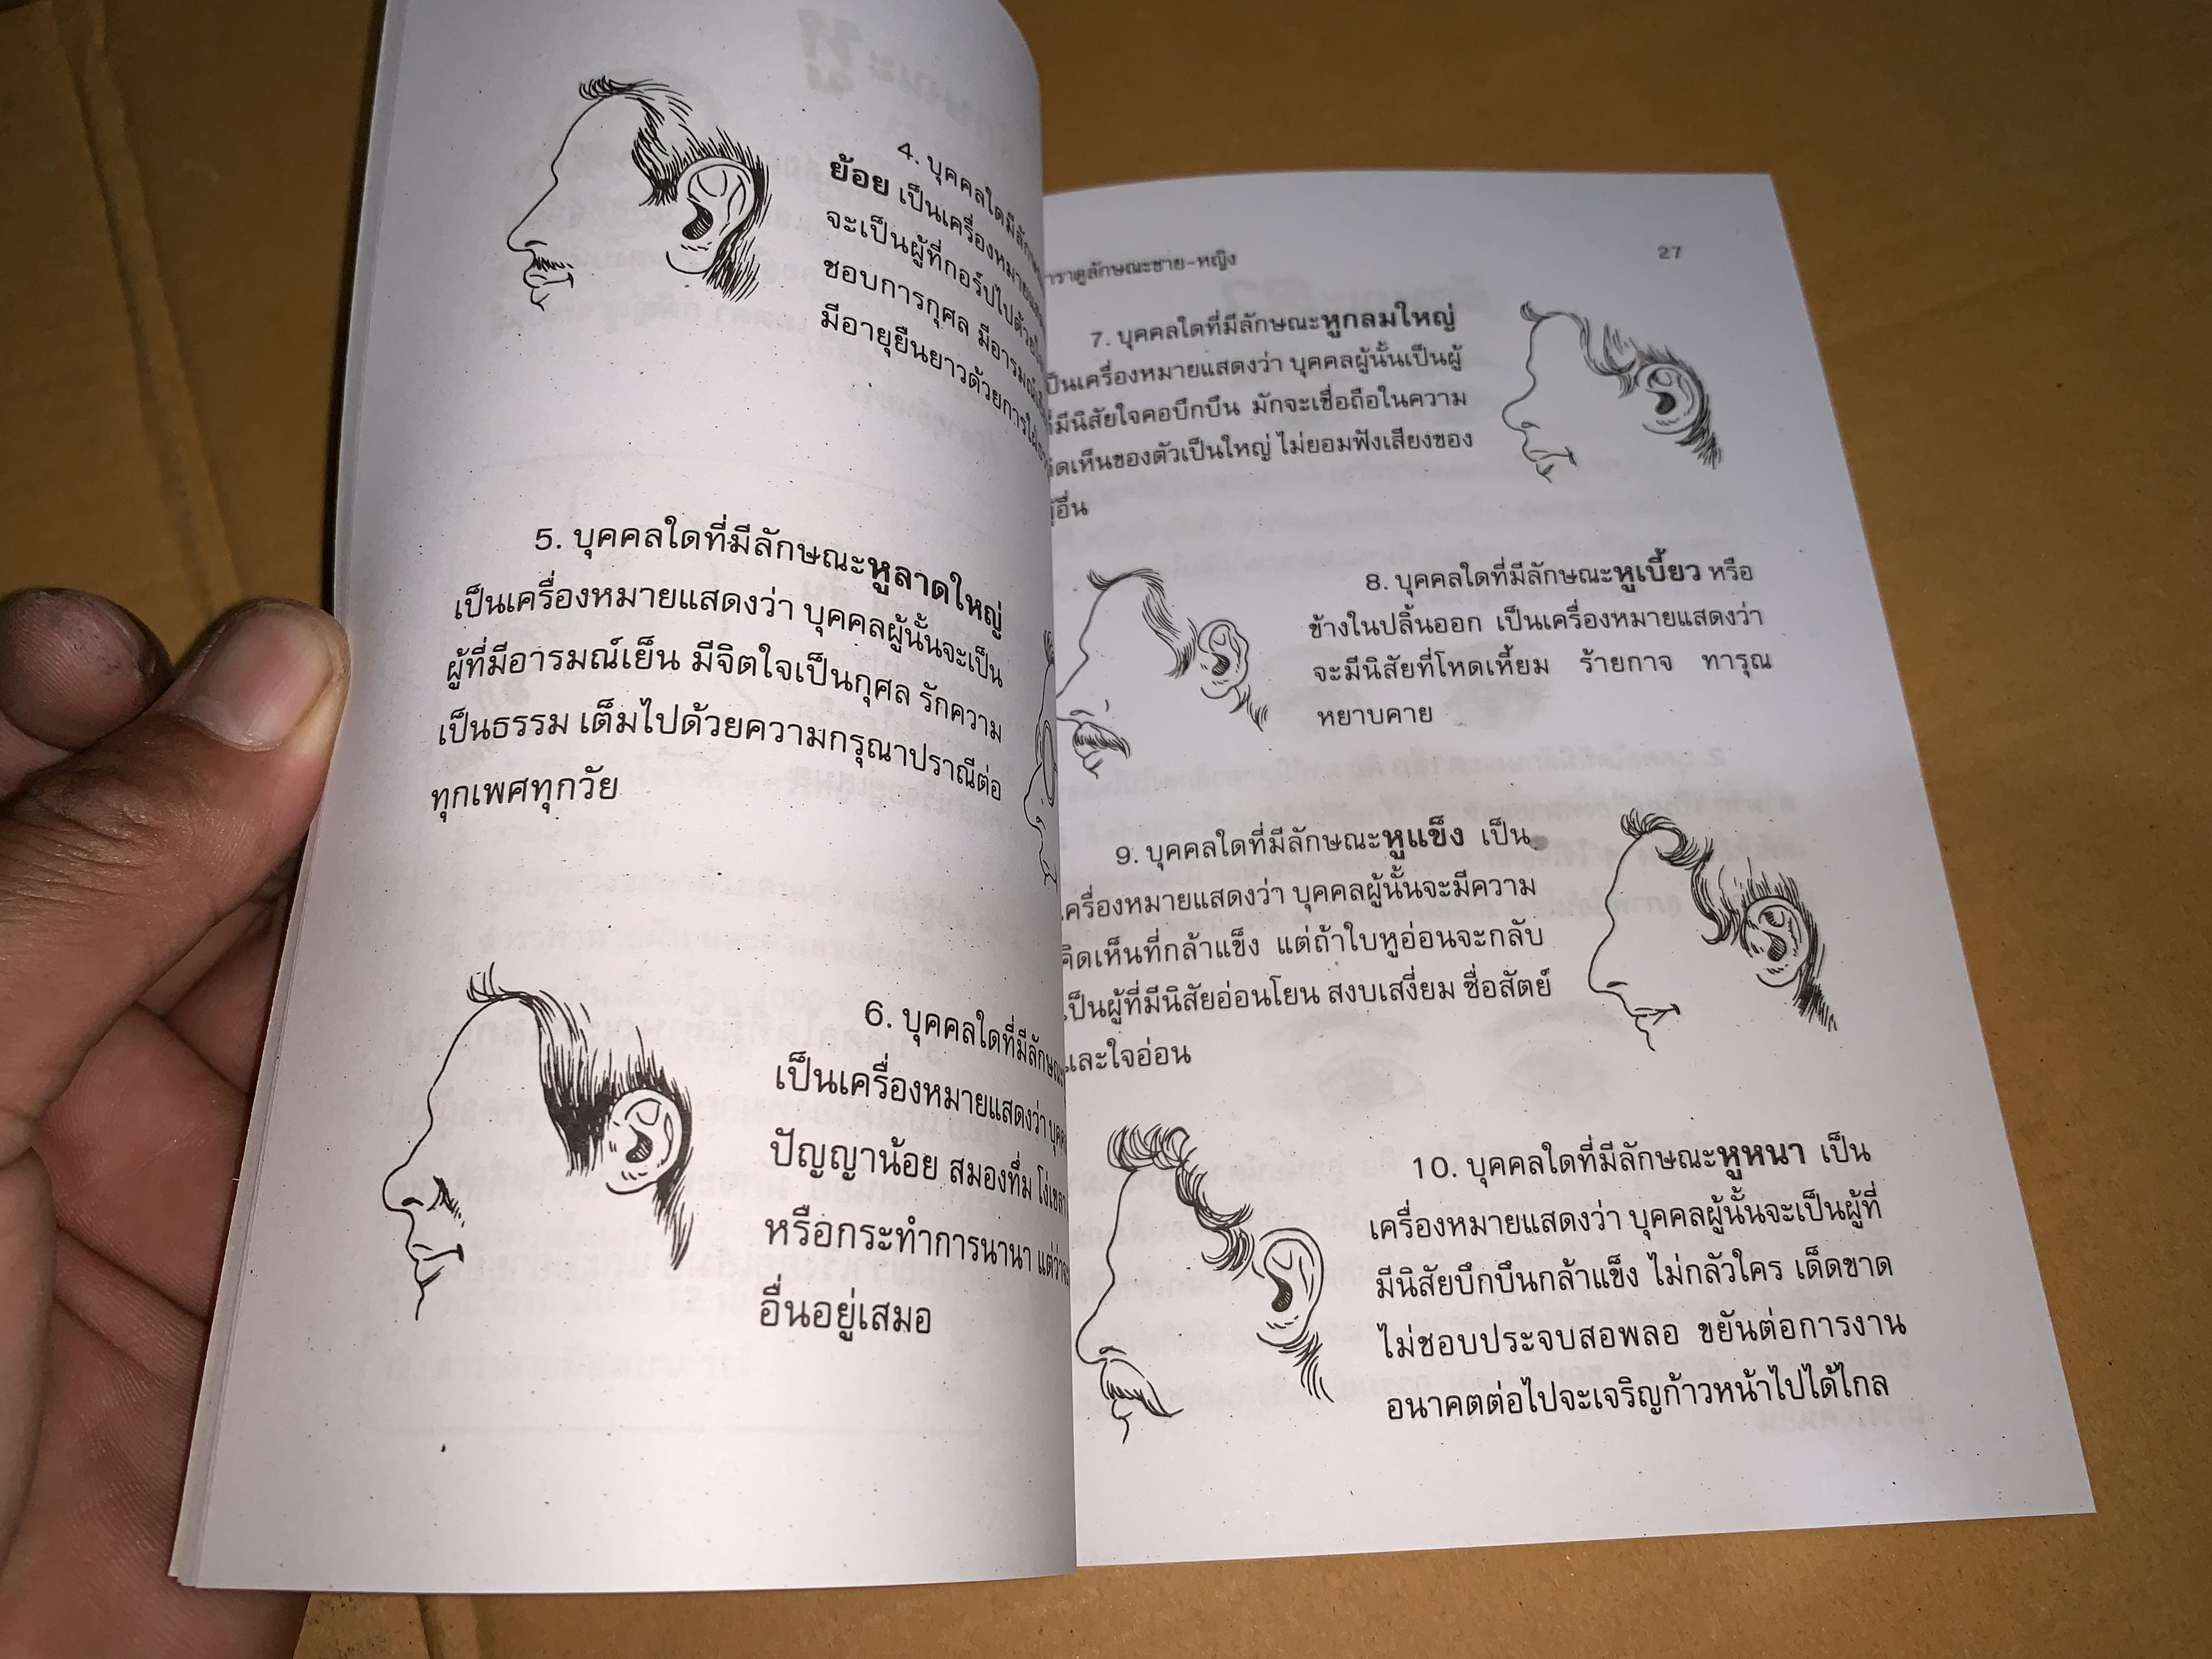 4. บุคคลใดมีลักษณะ
ย้อย เป็นเครื่องหมายแสดง
จะเป็นผู้ที่กอร์ปไปด้วย
ชอบการกุศล มีอารมณ์
มีอายุยืนยาวด้วยการ
5. บุคคลใดที่มีลักษณะหูลาดใหญ่
เป็นเครื่องหมายแสดงว่า บุคคลผู้นั้นจะเป็น
ผู้ที่มีอารมณ์เย็น มีจิตใจเป็นกุศล รักความ
เป็นธรรม เต็มไปด้วยความกรุณาปราณีต่อ
ทุกเพศทุกวัย
6. บุคคลใดที่มีลักษณะ
เป็นเครื่องหมายแสดงว่า
ปัญญาน้อย สมองทึ่ม โง่เขลา
หรือกระทำการนานา
อื่นอยู่เสมอ
ราดูลักษณะชาย-หญิง 27
7. บุคคลใดที่มีลักษณะหูกลมใหญ่
เป็นเครื่องหมายแสดงว่า บุคคลผู้นั้นเป็นผู้
ที่มีนิสัยใจคอบึกบึน มักจะเชื่อถือในความ
คิดเห็นของตัวเป็นใหญ่ ไม่ยอมฟังเสียงของ
ผู้อื่น
8. บุคคลใดที่มีลักษณะหูเบี้ยว หรือ
ข้างในปลิ้นออก เป็นเครื่องหมายแสดงว่า
จะมีนิสัยที่โหดเหี้ยม ร้ายกาจ ทารุณ
หยาบคาย
9. บุคคลใดที่มีลักษณะหูแข็ง เป็น
เครื่องหมายแสดงว่า บุคคลผู้นั้นจะมีความ
คิดเห็นที่กล้าแข็ง แต่ถ้าใบหูอ่อนจะกลับ
เป็นผู้ที่มีนิสัยอ่อนโยน สงบเสงี่ยม ซื่อสัตย์
และใจอ่อน
10. บุคคลใดที่มีลักษณะหูหนา เป็น
เครื่องหมายแสดงว่า บุคคลผู้นั้นจะเป็นผู้ที่
มีนิสัยบึกบึนกล้าแข็ง ไม่กลัวใคร เด็ดขาด
ไม่ชอบประจบสอพลอ ขยันต่อการงาน
อนาคตต่อไปจะเจริญก้าวหน้าไปได้ไกล